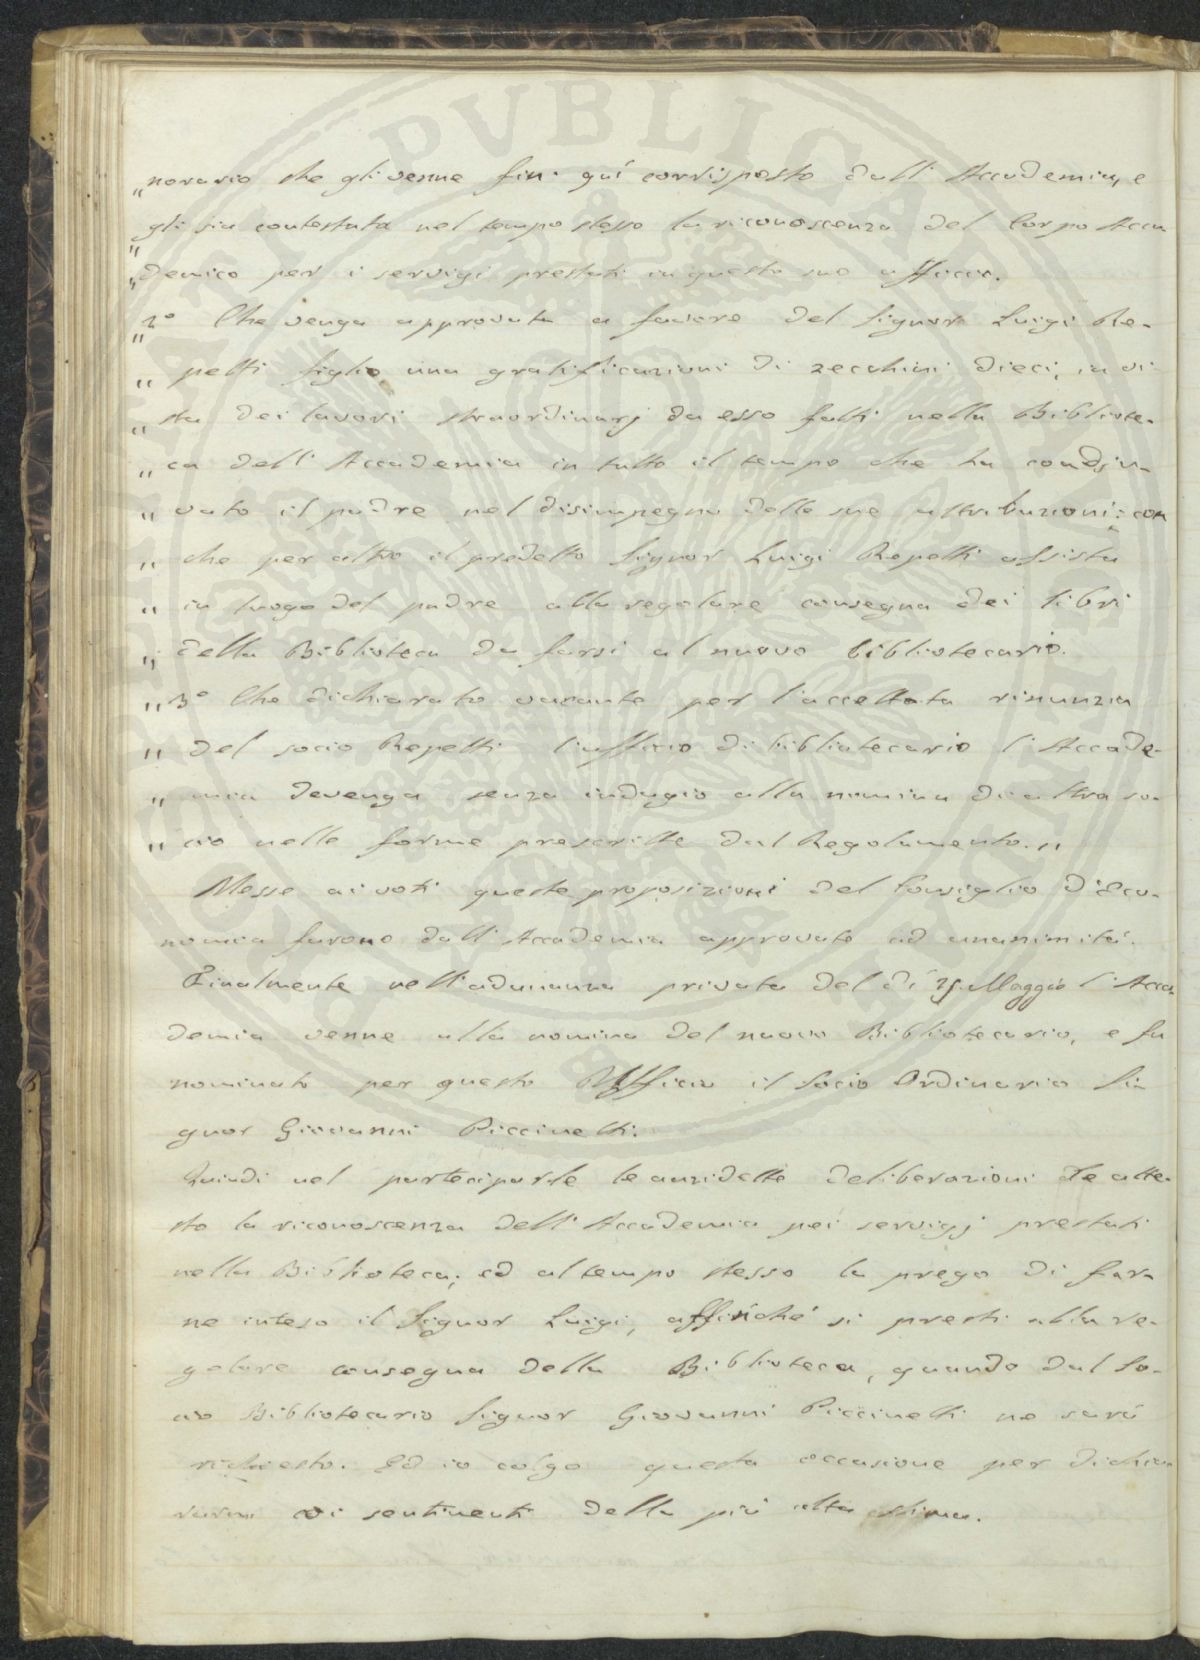 „norario che gli venne fin quí corrisposto dall' Accademia, e
„gli sia contestata nel tempo stesso la riconoscenza del Corpo Acca
„demico per i servigi prestati in questo suo ufficio.
„2° Che venga approvata a favore del Signor Luigi Re-
„petti figlio una gratificazioni di zecchini dieci, in vi
„sta dei lavori straordinarj da esso fatti nella Bibliote-
„ca dell' Accademia in tutto il tempo che ha coadju-
„vato il padre nel disimpegno delle sue attribuzioni: con
„che per altro il predetto Signor Luigi Repetti assista
„in luogo del padre alla regolare consegna dei libri
„della Biblioteca da farsi al nuovo bibliotecario.
„3° Che dichiarato vacante per l'accettata rinunzia
„del socio Repetti l'ufficio di bibliotecario l'Accade-
„mia devenga senza indugio alla nomina di altro so-
„cio nelle forme prescritte dal Regolamento.„
Messe ai voti queste proposizioni del Consiglio d'Eco-
nomia furono dall' Accademia approvate ad unanimitá.
Finalmente nell'adunanza privata del dí 25. Maggio l'Acca-
demia venne alla nomina del nuovo Bibliotecario, e fu
nominato per questo Ufficio il Socio Ordinario Si-
gnor Giovanni Piccinetti.
Quindi nel parteciparle le anzidette deliberazioni Le atte-
sto la riconoscenza dell' Accademia pei servigj prestati
nella Biblioteca; ed al tempo stesso la prego di far-
ne inteso il Signor Luigi, affinché si presti alla re-
golare consegna della Biblioteca, quando dal So-
cio Bibliotecario Signor Giovanni Piccinetti ne sará
richiesto. Ed io colgo questa occasione per dichia
rarmi coi sentimenti della piú alta stima.
PVBLICA